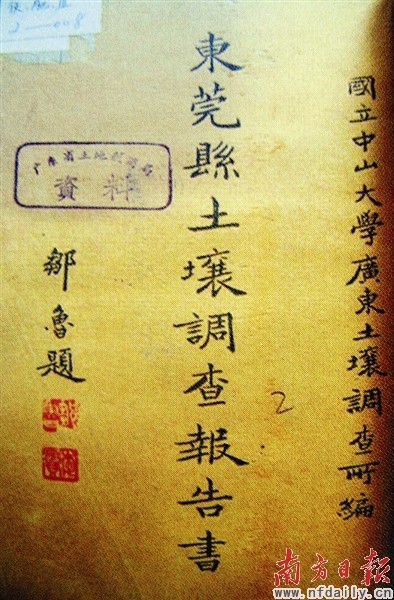 國立中山大學廣東土壤調查所編
東莞縣土壤調查報告書
2
鄒魯題
資料
南方日报
www.nfdaily.cn